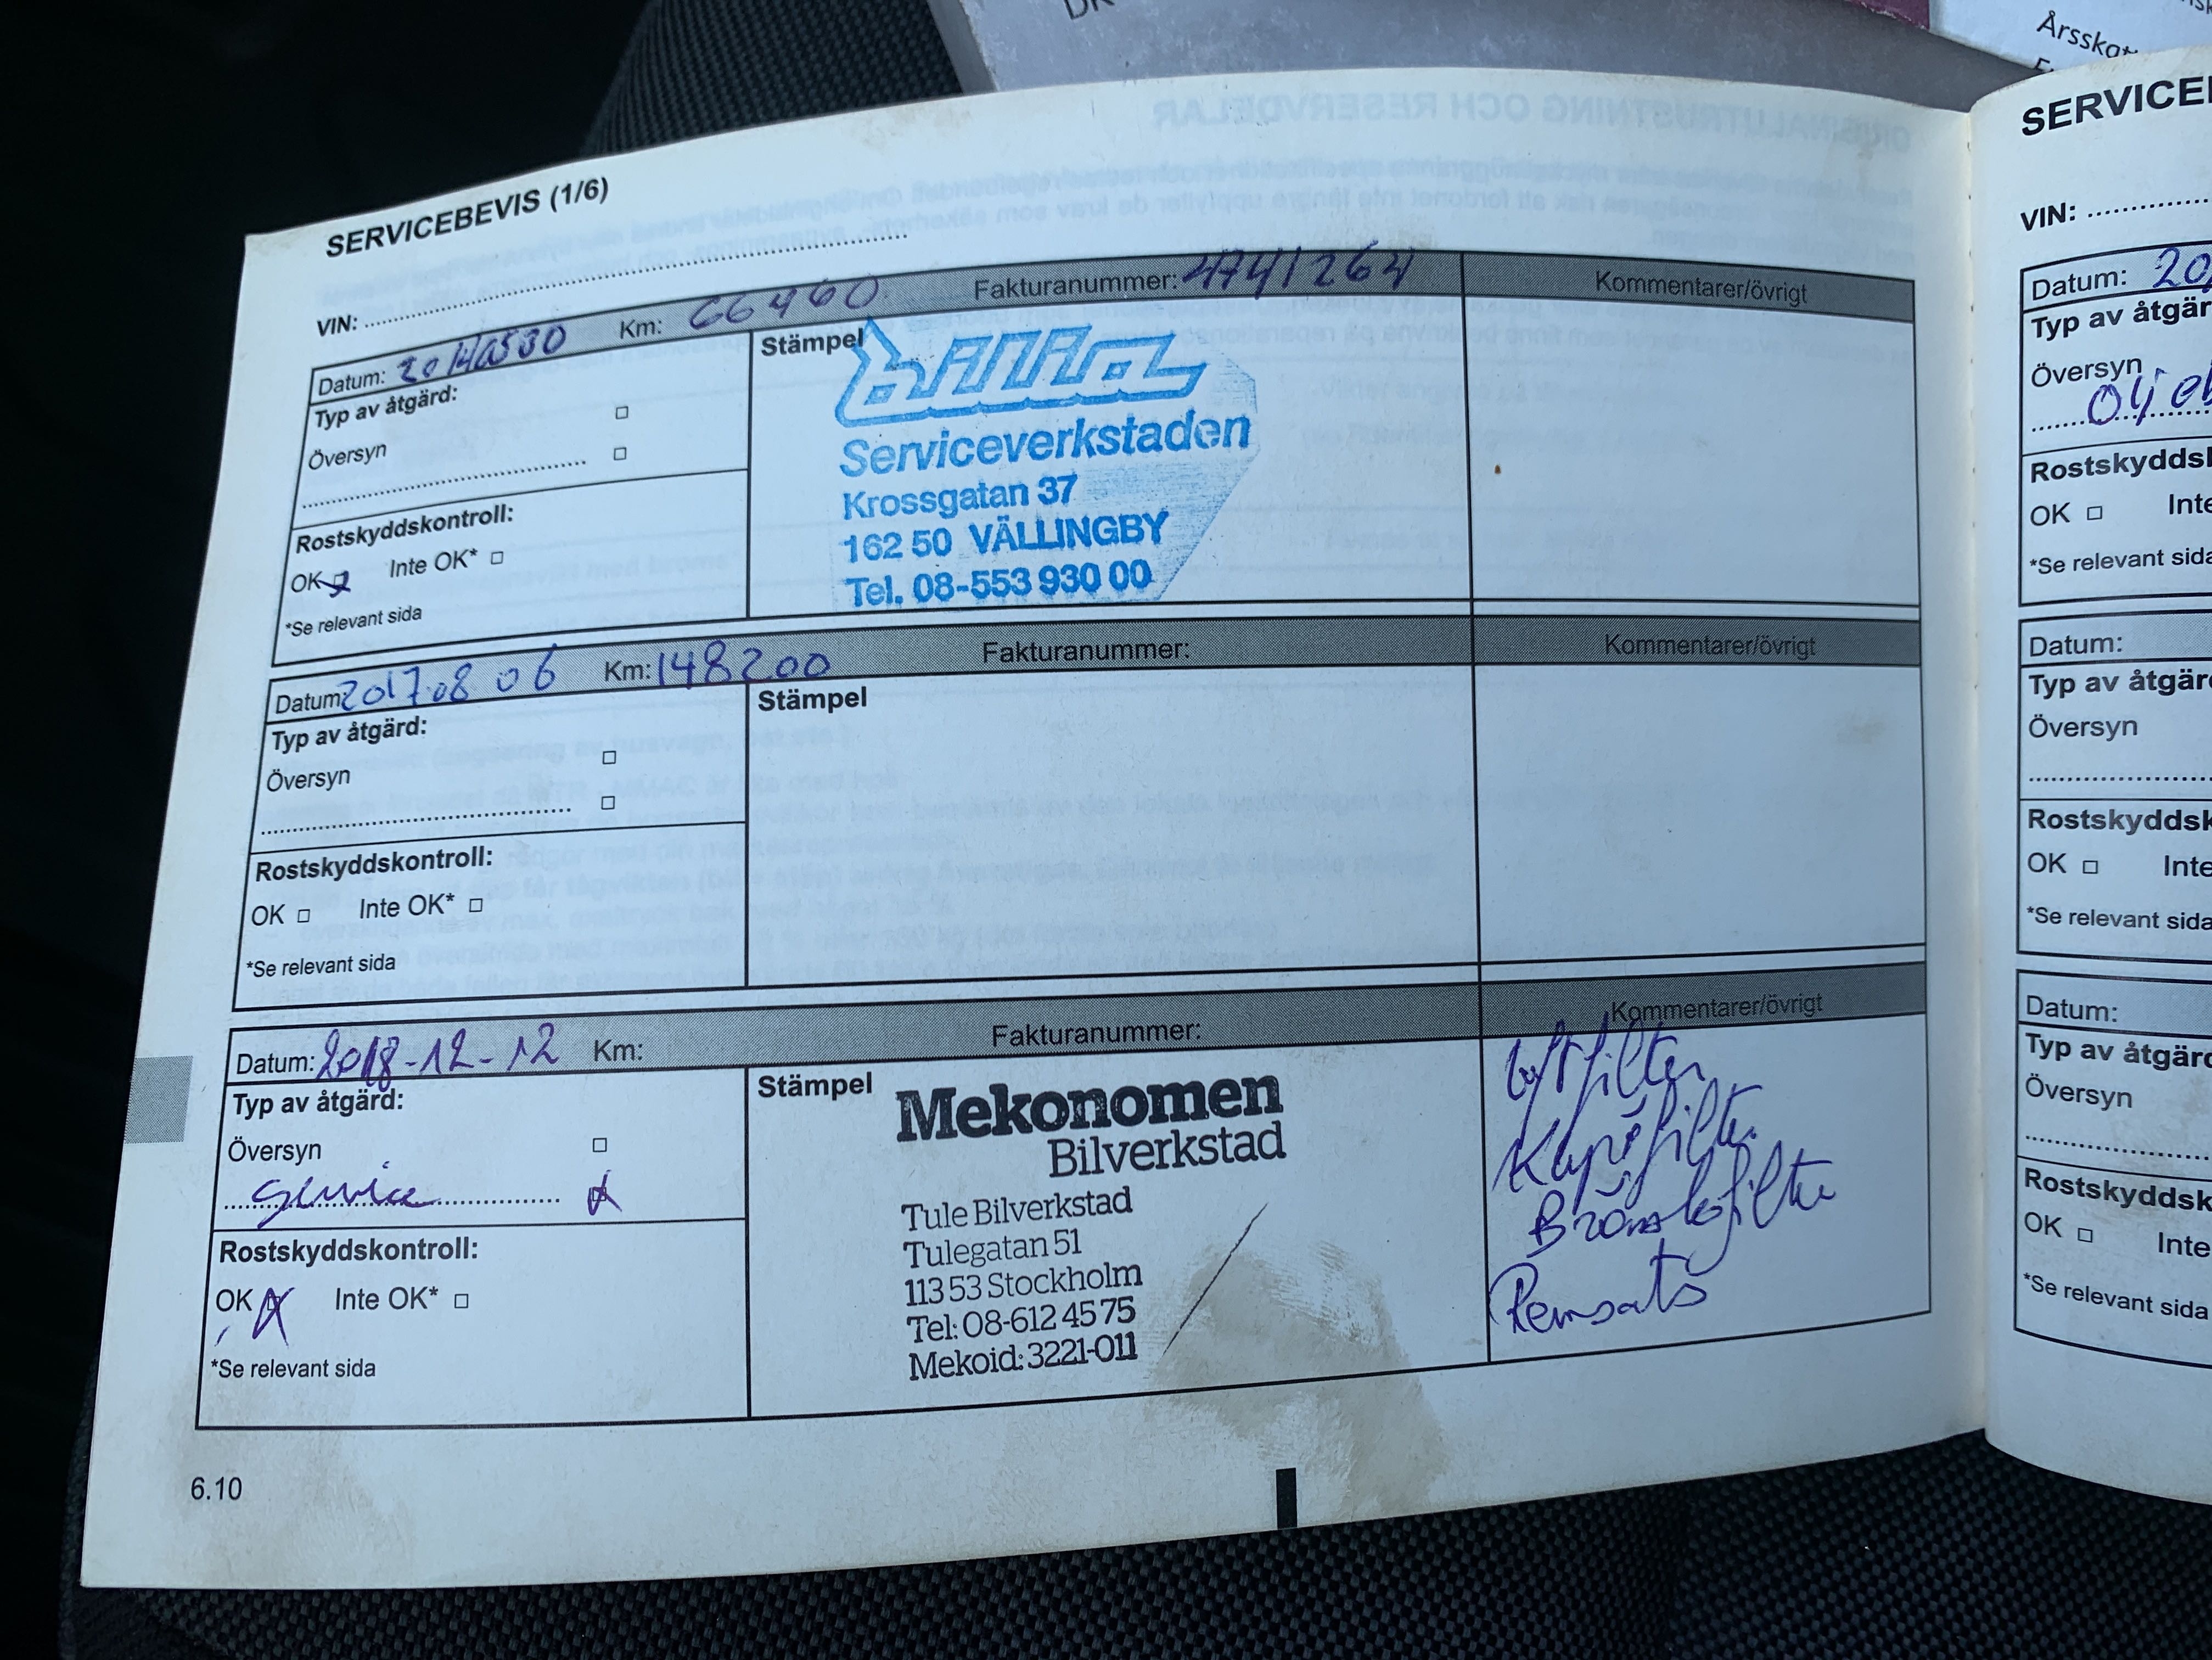 Årsskatt
SERVICEBEVIS (1/6)
VIN:
Datum: 20140530 Km: 66460 Fakturanummer: 4741264 Kommentarer/övrigt
Typ av åtgärd:
Översyn
Rostskyddskontroll:
OK Inte OK*
*Se relevant sida
Stämpel
BANA
Serviceverkstaden
Krossgatan 37
162 50 VÄLLINGBY
Tel. 08-553 930 00
Datum: 2017 08 06 Km: 148200 Fakturanummer: Kommentarer/övrigt
Typ av åtgärd:
Översyn
Rostskyddskontroll:
OK Inte OK*
*Se relevant sida
Stämpel
Datum: 2018-12-12 Km: Fakturanummer: Kommentarer/övrigt
Typ av åtgärd:
Översyn
Service
Rostskyddskontroll:
OK Inte OK*
*Se relevant sida
Stämpel
Mekonomen
Bilverkstad
Tule Bilverkstad
Tulegatan 51
113 53 Stockholm
Tel: 08-612 45 75
Mekoid: 3221-011
Luftfilter
Kupéfilter
Bränslefilter
Remsats
6.10
SERVICE
VIN:
Datum: 20
Typ av åtgär
Översyn
Oljeb
Rostskydds
OK Inte
*Se relevant sida
Datum:
Typ av åtgär
Översyn
Rostskyddsk
OK Inte
*Se relevant sida
Datum:
Typ av åtgärd
Översyn
Rostskyddsk
OK Inte
*Se relevant sida